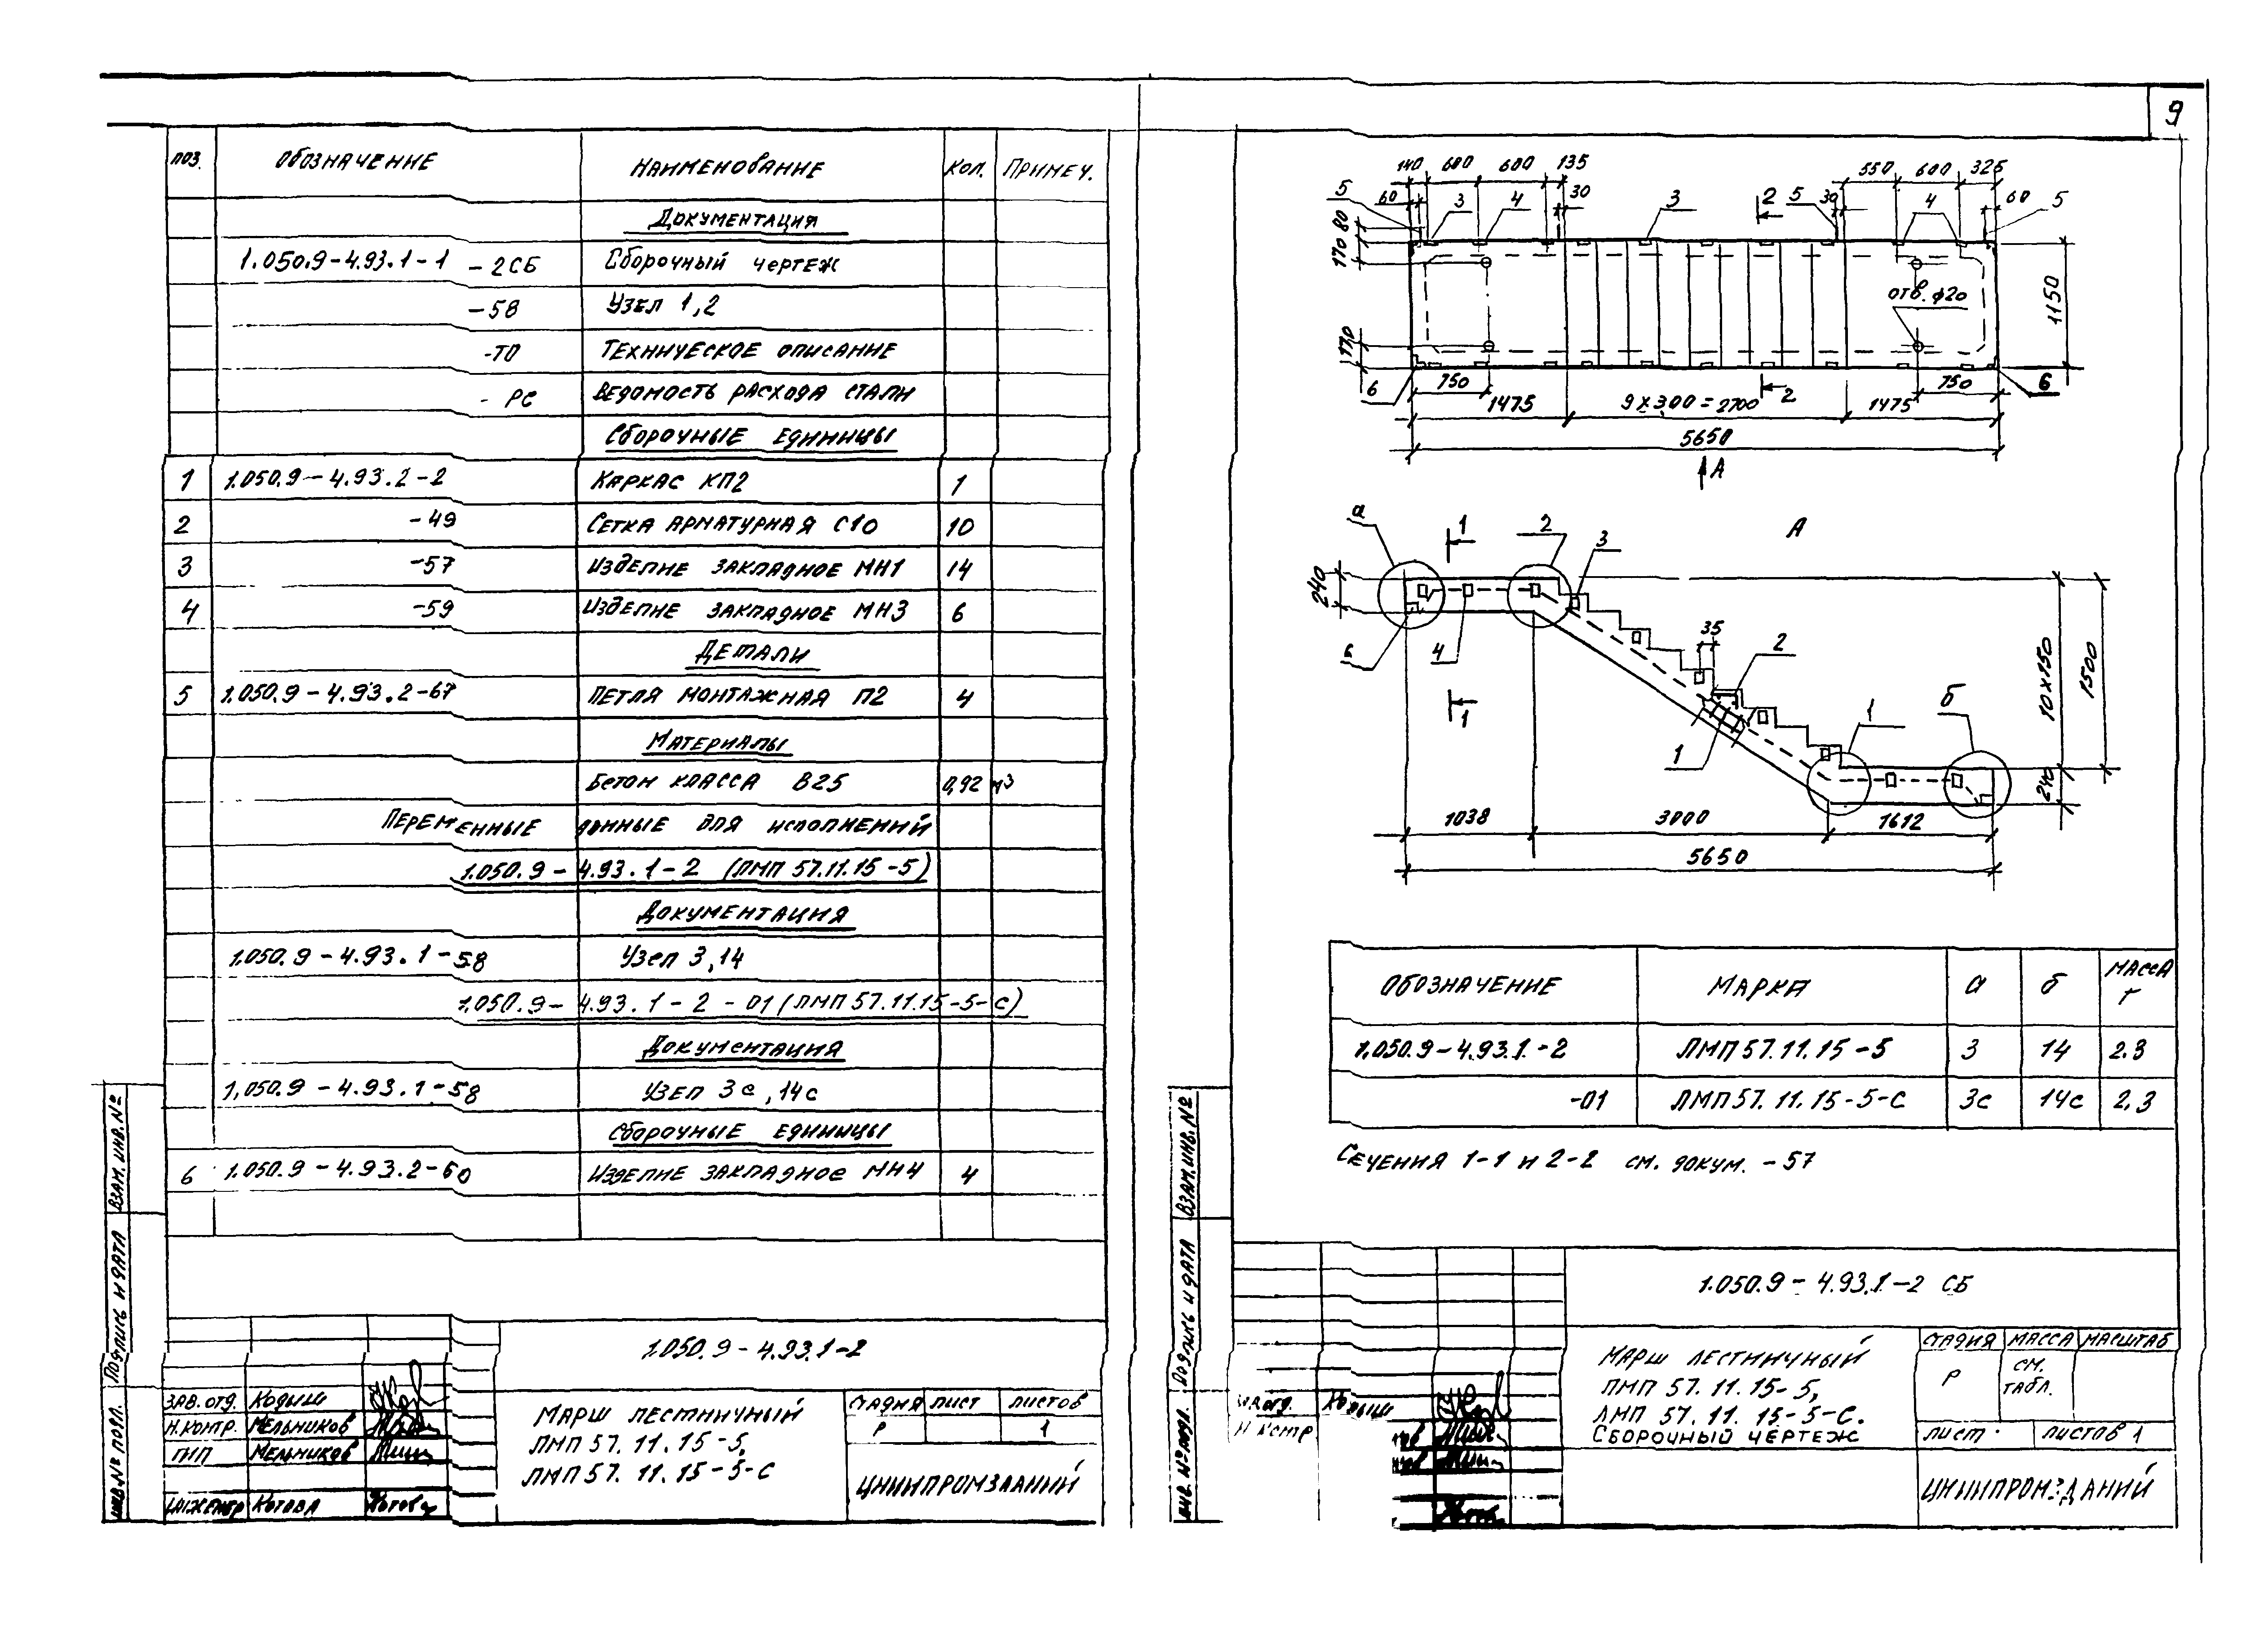 9
ПОЗ. ОБОЗНАЧЕНИЕ НАИМЕНОВАНИЕ КОЛ. ПРИМЕЧ.
ДОКУМЕНТАЦИЯ
1.050.9-4.93.1-1 -2СБ СБОРОЧНЫЙ ЧЕРТЕЖ
-58 УЗЕЛ 1,2
-ТО ТЕХНИЧЕСКОЕ ОПИСАНИЕ
-РС ВЕДОМОСТЬ РАСХОДА СТАЛИ
СБОРОЧНЫЕ ЕДИНИЦЫ
1 1.050.9-4.93.2-2 КАРКАС КП2 1
2 -49 СЕТКА АРМАТУРНАЯ С10 10
3 -57 ИЗДЕЛИЕ ЗАКЛАДНОЕ МН1 14
4 -59 ИЗДЕЛИЕ ЗАКЛАДНОЕ МН3 6
ДЕТАЛИ
5 1.050.9-4.93.2-67 ПЕТЛЯ МОНТАЖНАЯ П2 4
МАТЕРИАЛЫ
БЕТОН КЛАССА В25 0,92 м3
ПЕРЕМЕННЫЕ ДАННЫЕ ДЛЯ ИСПОЛНЕНИЙ
1.050.9-4.93.1-2 (ЛМП 57.11.15-5)
ДОКУМЕНТАЦИЯ
1.050.9-4.93.1-58 УЗЕЛ 3,14
1.050.9-4.93.1-2-01 (ЛМП 57.11.15-5-С)
ДОКУМЕНТАЦИЯ
1.050.9-4.93.1-58 УЗЕЛ 3с,14с
СБОРОЧНЫЕ ЕДИНИЦЫ
6 1.050.9-4.93.2-60 ИЗДЕЛИЕ ЗАКЛАДНОЕ МН4 4
ВЗАМ. ИНВ. №
ПОДПИСЬ И ДАТА
ИНВ. № ПОДЛ.
1.050.9-4.93.1-2
ЗАВ. ОТД. КОДЫШ
Н. КОНТР. МЕЛЬНИКОВ
ГИП МЕЛЬНИКОВ
ИНЖЕНЕР КОТОВА
МАРШ ЛЕСТНИЧНЫЙ
ЛМП 57.11.15-5,
ЛМП 57.11.15-5-С
СТАДИЯ ЛИСТ ЛИСТОВ
Р 1
ЦНИИПРОМЗДАНИЙ
140 600 600 135 550 600 325
5 60 3 4 30 3 2 5 30 4 60 5
80
170
ОТВ. ф20
1150
170
6 750 2 750 6
1475 9х300=2700 1475
5650
А
а 1 2 3 А
240
6 4 35 2
10х150 1500
1 1 1 б
240
1038 3000 1612
5650
ОБОЗНАЧЕНИЕ МАРКА а б МАССА т
1.050.9-4.93.1-2 ЛМП 57.11.15-5 3 14 2.3
-01 ЛМП 57.11.15-5-С 3с 14с 2,3
СЕЧЕНИЯ 1-1 И 2-2 СМ. ДОКУМ. -57
ВЗАМ. ИНВ. №
ПОДПИСЬ И ДАТА
ИНВ. № ПОДЛ.
1.050.9-4.93.1-2 СБ
КОДЫШ
Н. КОНТР
МАРШ ЛЕСТНИЧНЫЙ
ЛМП 57.11.15-5,
ЛМП 57.11.15-5-С.
СБОРОЧНЫЙ ЧЕРТЕЖ
СТАДИЯ МАССА МАСШТАБ
Р СМ. ТАБЛ.
ЛИСТ ЛИСТОВ 1
ЦНИИПРОМЗДАНИЙ